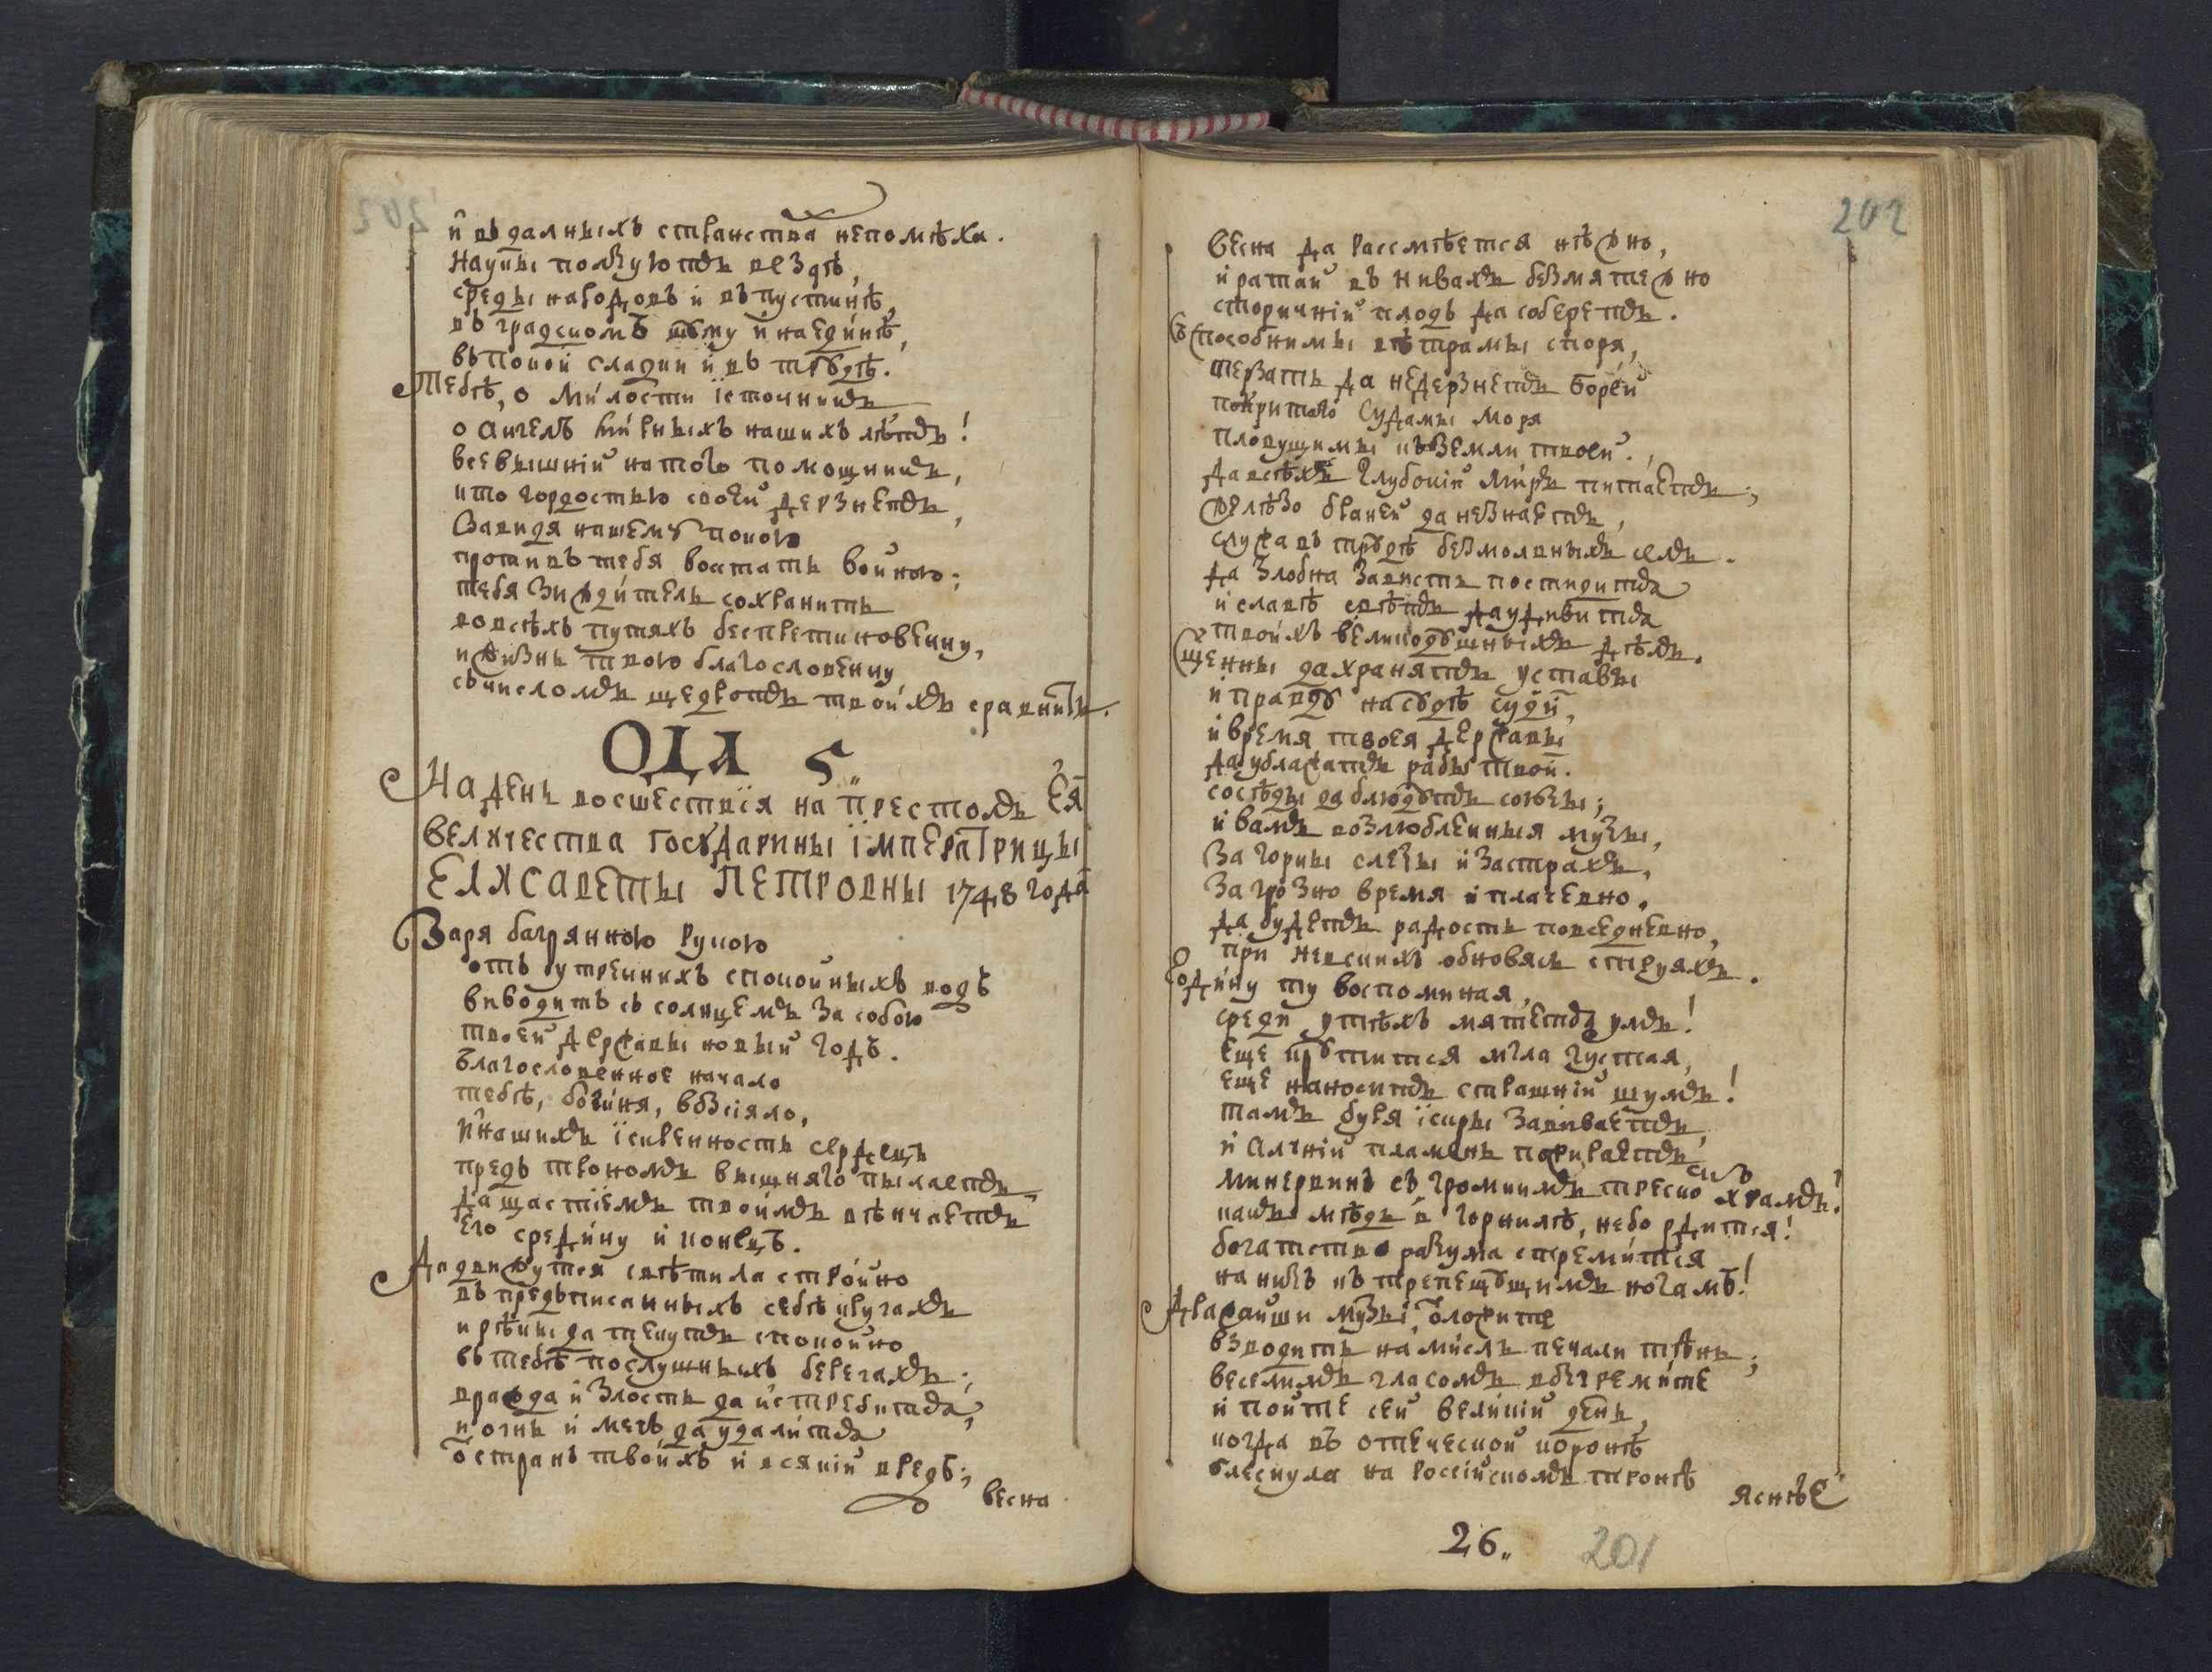 и въ далныхъ странства непомѣха.
Науки ползуютъ вездѣ,
среды народовъ и въ пустинѣ,
въ градскомъ шуму и наединѣ,
въ покои сладки и въ трудѣ.
Тебѣ, о милости источникъ
о ангелъ мирныхъ нашихъ лѣтъ!
всевышній на того помощникъ,
кто гордостью своей дерзнетъ,
Завидя нашему покою
противъ тебя востать войною;
тебя Зиждитель сохранитъ
во всѣхъ путяхъ беспреткновенну,
и жизнь твою благословенну
съ числомъ щедротъ твоихъ сравнитъ.
ОДА ѕ.
На день восшествія на престолъ Ея
величества государини імператрицы
ЕЛИСАВЕТЫ ПЕТРОВНЫ 1748 года
Заря багрянною рукою
отъ утреннихъ спокойныхъ водъ
виводитъ съ солнцемъ за собою
твоей державы новый годъ.
Благословенное начало
тебѣ, богиня, возсіяло,
И нашихъ іскренность сердецъ
предъ трономъ вышняго пылаетъ
да щастіемъ твоимъ вѣнчаетъ
его средину и конецъ.
Да движутся свѣтила стройно
въ предъписанныхъ себѣ кругахъ
и рѣки да текутъ спокойно
въ тебѣ послушныхъ берегахъ;
вражда и злость да истребитца,
и огнь и мечъ да удалитца
о странъ твоихъ и всякій вредъ;
весна
202
весна да рассмѣется нѣжно,
и ратай въ нивахъ безмятежно
сторичній плодъ да соберетъ.
Съ способнимы вѣтрамы споря,
терзать да недерзнетъ Борей
покритаго судамы моря
пловущимы къ земли твоей.
Да всѣхъ глубокій миръ питаетъ;
желѣзо браней да незнаетъ,
служа въ трудѣ безмолвныхъ селъ.
да злобна зависть постидитца
и славѣ свѣтъ да удивитца
твоихъ великодушныхъ дѣлъ.
Щенны да хранятъ уставы
и правду на судѣ судіи,
и время твоея державы
да ублажатъ рабы твои.
сосѣды да блюдутъ союзы;
и вамъ возлюбленныя музы,
За горкы слезы и за страхъ,
За грозно время и плачевно,
да будетъ радость повседневно,
при невскихъ обновясь струяхъ.
Годину ту воспоминая,
среди утѣхъ мятетца умъ!
еще крутится мгла густая,
еще наноситъ страшній шумъ!
тамъ буря іскры завіваетъ,
и алчній пламень пожираетъ
минервинъ съ громкимъ трескомъ храмъ!
какъ мѣдь в горнилѣ, небо рдится!
богатство разума стремится
на низъ къ трепещущимъ ногамъ!
Дражайши музы, отложите
взводить на мисль печали тѣнь;
веселимъ гласомъ возгремите
и пойте сей великій день,
когда въ отеческой коронѣ
блеснула на россійскомъ тронѣ
яснѣе
26.
201